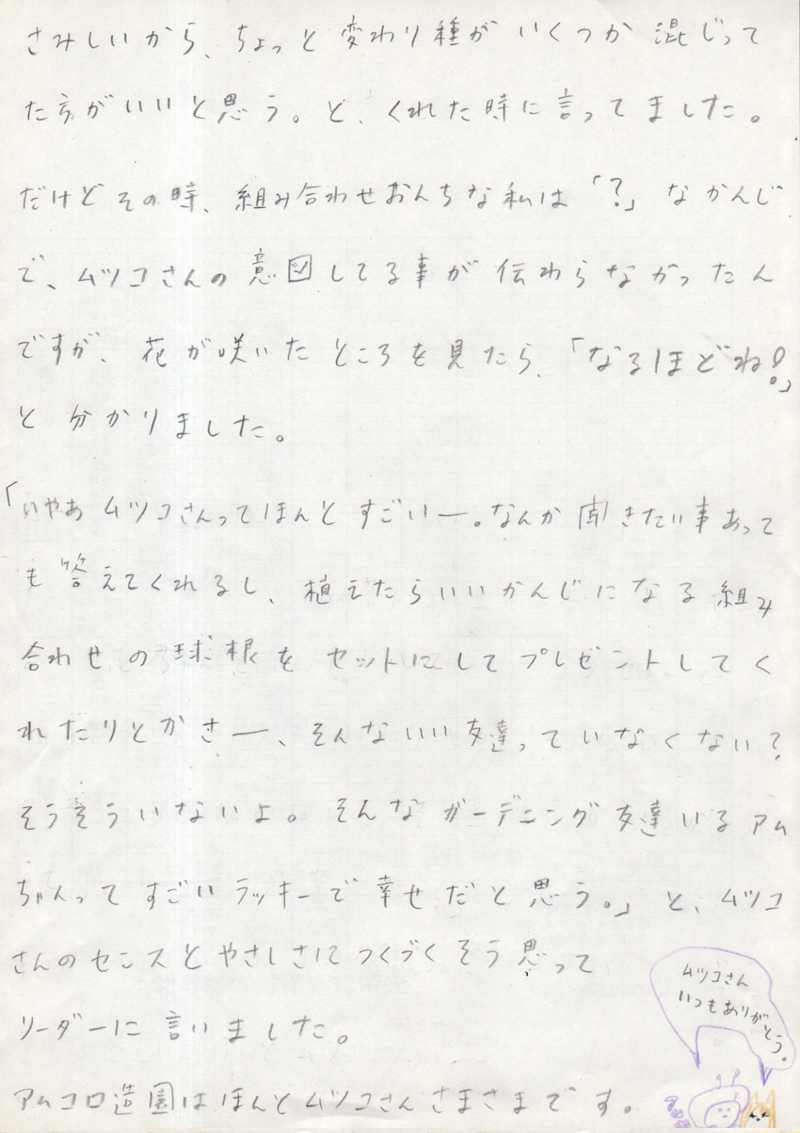 さみしいから、ちょっと変わり種がいくつか混じって
た方がいいと思う。と、くれた時に言ってました。
だけどその時、組み合わせおんちな私は「?」なかんじ
で、ムツコさんの意図してる事が伝わらなかったん
ですが、花が咲いたところを見たら、「なるほどね!」
と分かりました。
「いやあムツコさんってほんとすごいー。なんか聞きたい事あって
も答えてくれるし、植えたらいいかんじになる組み
合わせの球根をセットにしてプレゼントしてく
れたりとかさー、そんないい友達っていなくない?
そうそういないよ。そんなガーデニング友達いるアム
ちゃんってすごいラッキーで幸せだと思う。」と、ムツコ
さんのセンスとやさしさにつくづくそう思って
リーダーに言いました。
アムコロ造園はほんとムツコさんさまさまです。
ムツコさん
いつもありがとう。